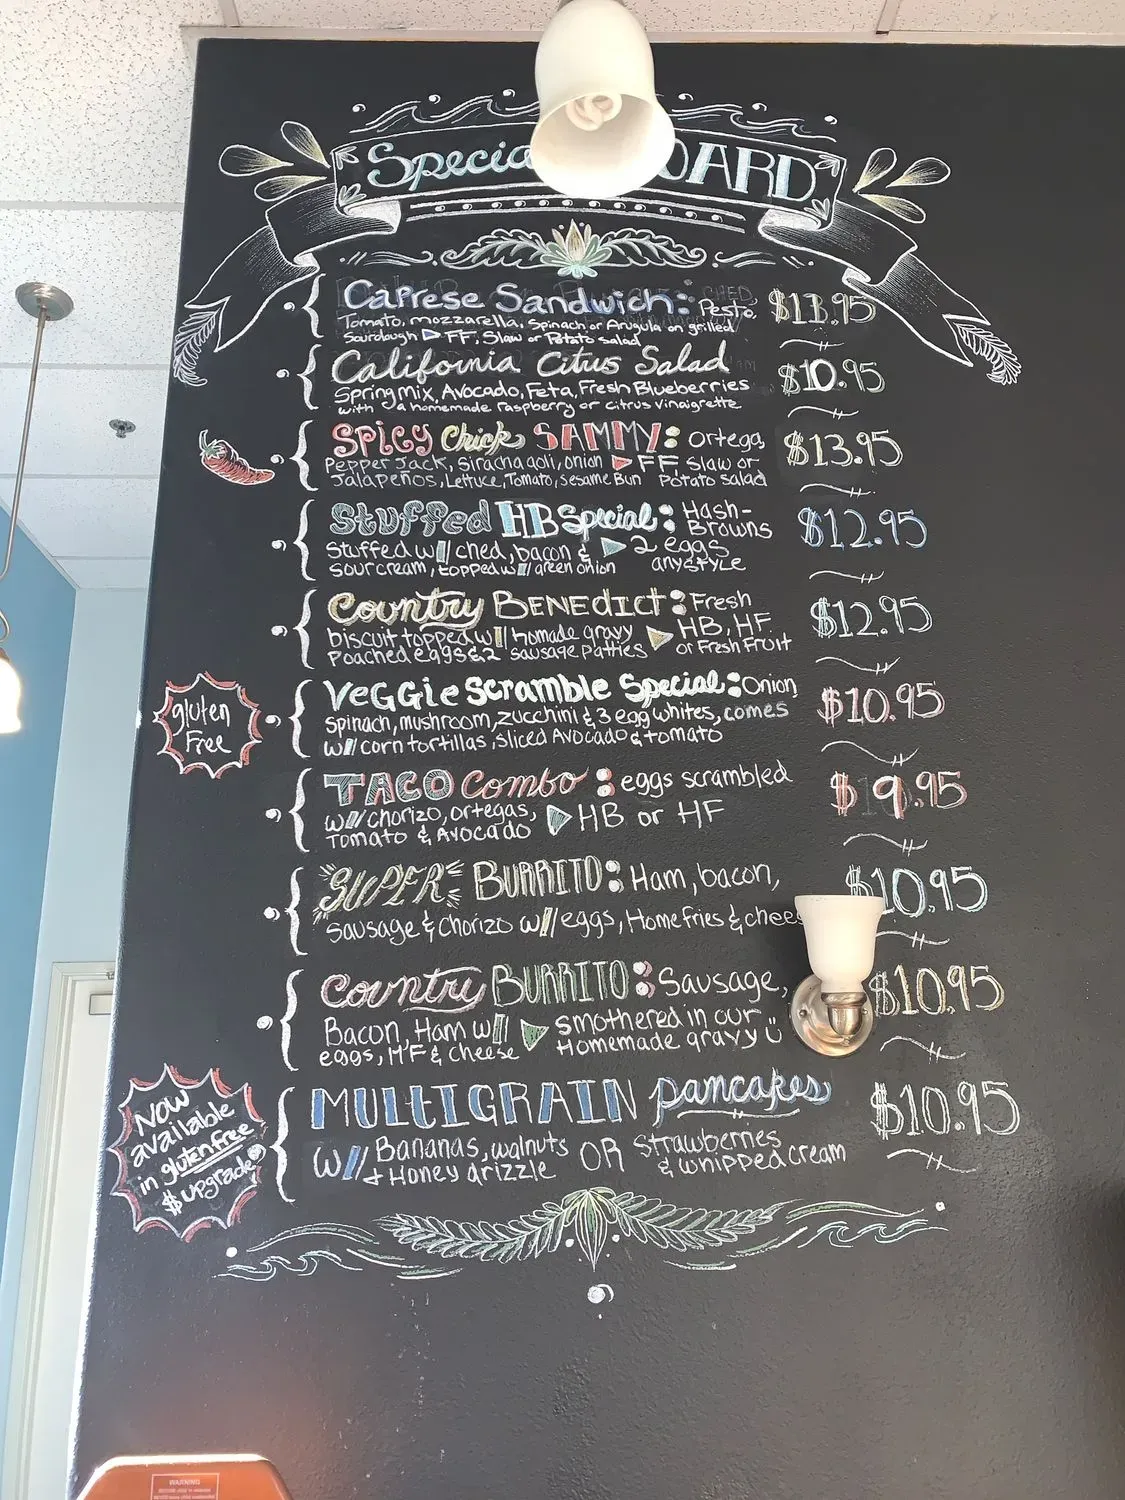 Specia OARD
Caprese Sandwich: Pesto, $11.95
Tomato, mozzarella, Spinach or Arugula on grilled
Sourdough ▷ FF, Slaw or Potato salad
California Citrus Salad $10.95
Spring mix, Avocado, Feta, Fresh Blueberries
with a homemade raspberry or citrus vinaigrette
SPICY Chick SAMMY: Ortega, $13.95
Pepper Jack, Siracha aoli, onion ▷ FF Slaw or
Jalapeños, Lettuce, Tomato, Sesame Bun Potato salad
Stuffed HB Special: Hash- $12.95
Browns
Stuffed w/ ched, bacon & ▷ 2 eggs
sour cream, topped w/ green onion anystyle
Country BENEDICT: Fresh $12.95
biscuit topped w/ homade gravy ▷ HB, HF
Poached eggs & 2 sausage patties or Fresh Fruit
gluten
Free
VeGGie Scramble Special: Onion $10.95
Spinach, mushroom, zucchini & 3 egg whites, comes
w/ corn tortillas, sliced Avocado & tomato
TACO Combo: eggs scrambled $9.95
w/ chorizo, ortegas, ▷ HB or HF
Tomato & Avocado
SUPER BURRITO: Ham, bacon, $10.95
Sausage & Chorizo w/ eggs, Home fries & chees
Country BURRITO: Sausage, $10.95
Bacon, Ham w/ ▷ smothered in our
eggs, H'F & cheese Homemade gravy
Now
available
in gluten free
$ upgrade
MULTIGRAIN pancakes $10.95
w/ Bananas, walnuts OR Strawberries
& Honey drizzle & whipped cream
WARNING